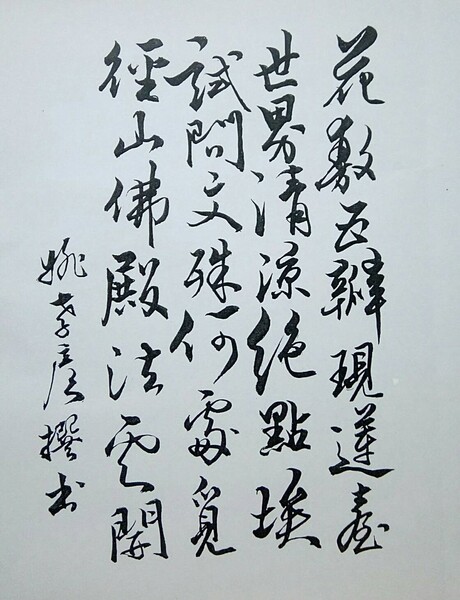 花敷五瓣現蓮臺
世界清涼絶點埃
試問文殊何處覓
徑山佛殿法雲開
姚孝彥撰書